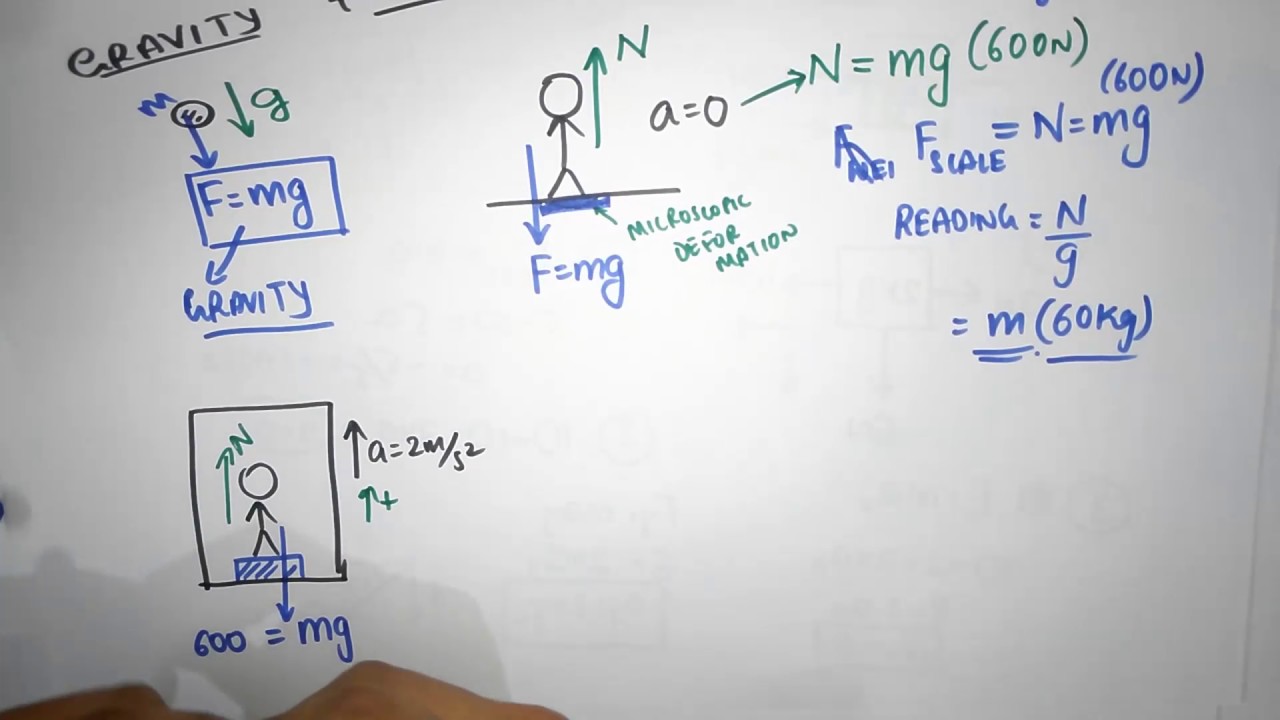 GRAVITY
m
g
F=mg
GRAVITY
N
a=0
F=mg
MICROSCOPIC
DEFOR
MATION
N=mg (600N)
(600N)
F SCALE = N=mg
READING = N/g
= m (60Kg)
N
a=2m/s²
+
600 = mg